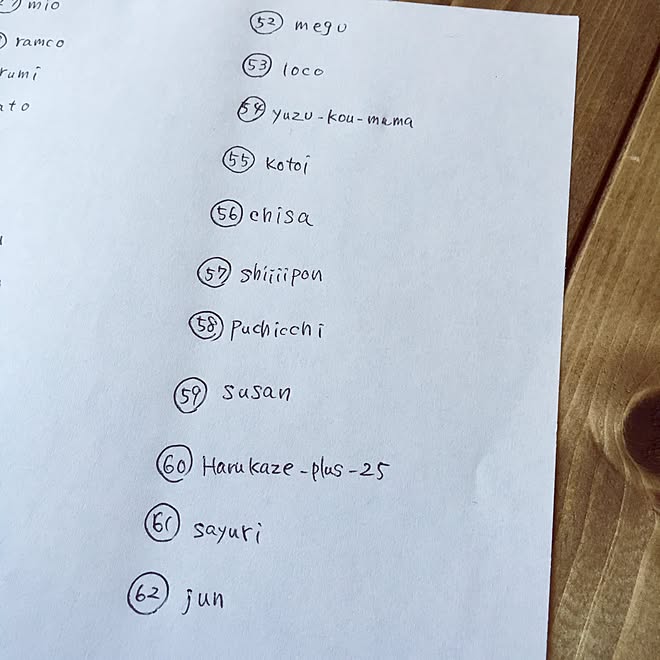 mio
ramco
rumi
ato
52 megu
53 loco
54 yuzu-kou-mama
55 kotoi
56 chisa
57 shiiiipon
58 Puchicchi
59 susan
60 Harukaze-plus-25
61 sayuri
62 jun